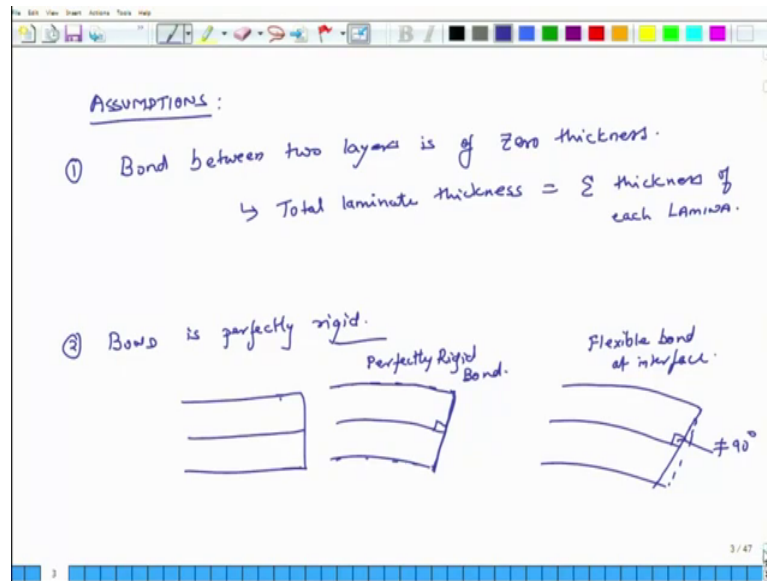 File Edit View Insert Actions Tools Help
ASSUMPTIONS :
① Bond between two layers is of zero thickness.
↳ Total laminate thickness = Σ thickness of
each LAMINA.
② BOND is perfectly rigid.
Perfectly Rigid
Bond.
Flexible bond
at interface.
≠ 90°
3 / 47
3